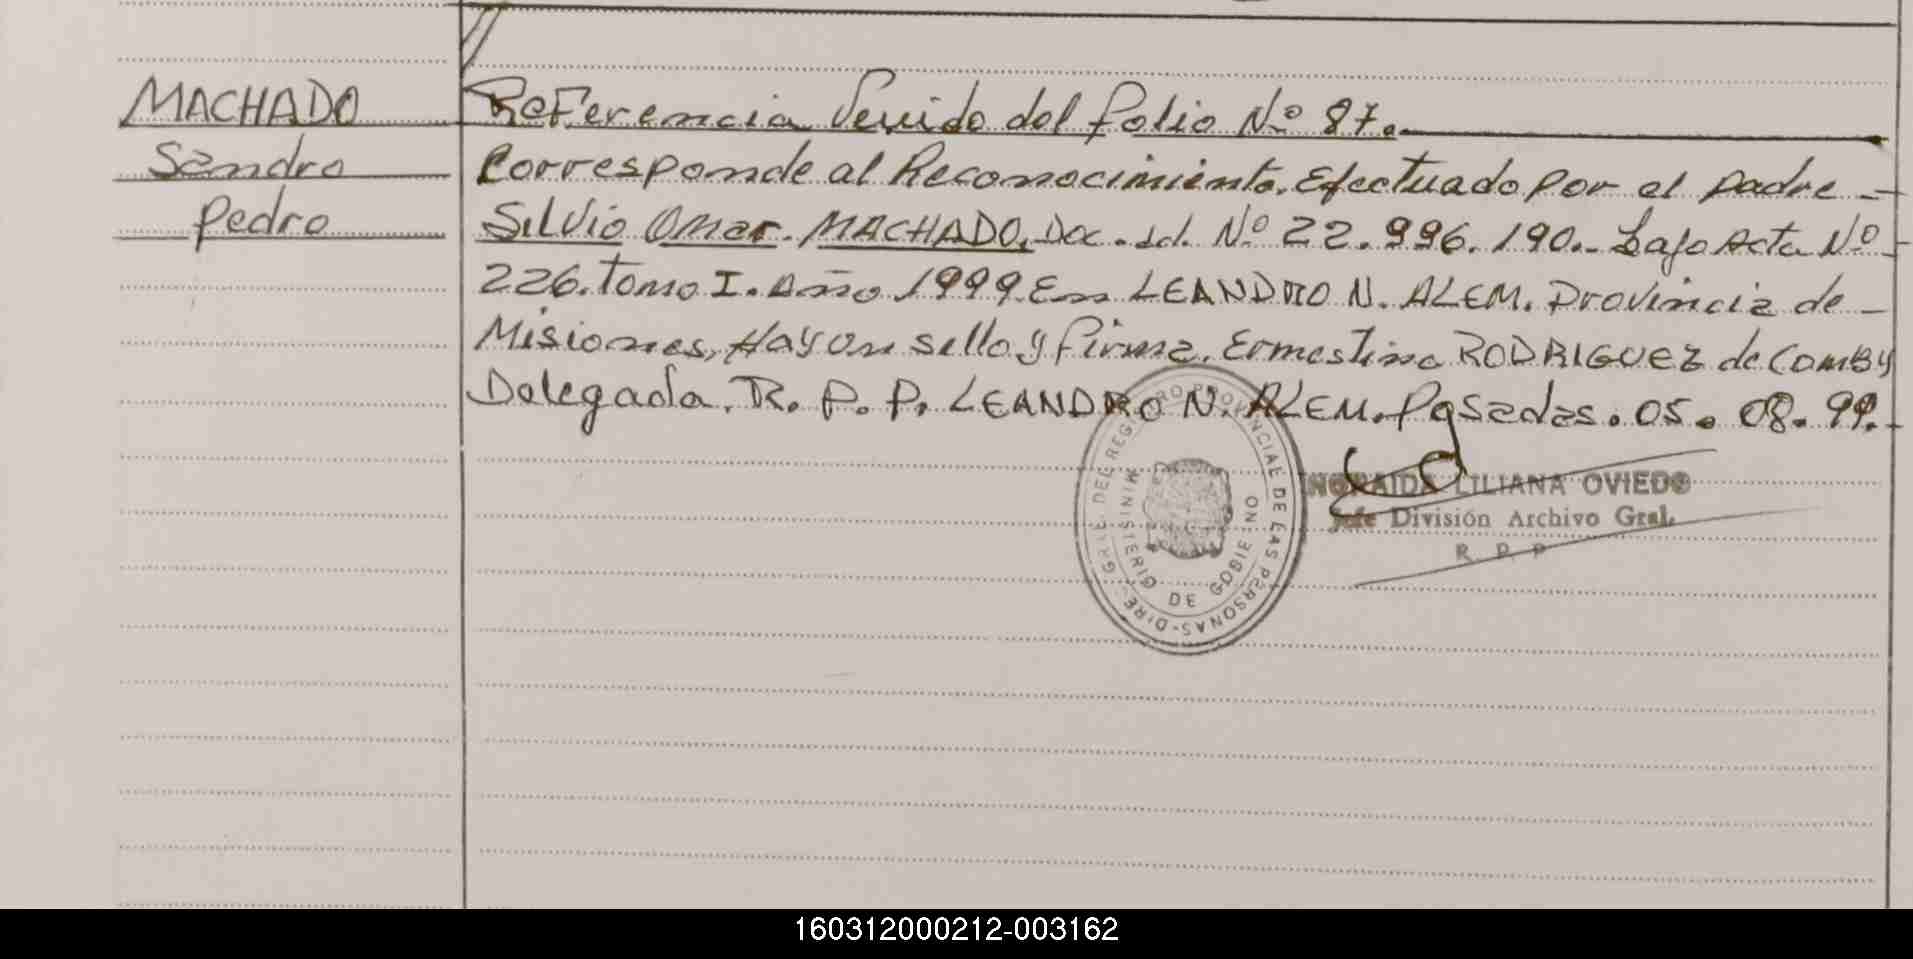 MACHADO
Sandro
Pedro
Referencia Venido del folio Nº 87.
Corresponde al Reconocimiento. Efectuado por el padre -
Silvio Omar. MACHADO, Doc. Id. Nº 22.996.190.- bajo Acta Nº -
226. Tomo I. Año 1999. En LEANDRO N. ALEM. Provincia de -
Misiones, Hay un sello y firma. Ernestina RODRIGUEZ de COMBY
Delegada. R. P. P. LEANDRO N. ALEM. Posadas. 05. 08. 99.-
DIREC GRAL DEL REGISTRO PROVINCIAL DE LAS PERSONAS-
MINISTERIO DE GOBIERNO
LILIANA OVIEDO
Jefe División Archivo Gral.
R P P
160312000212-003162